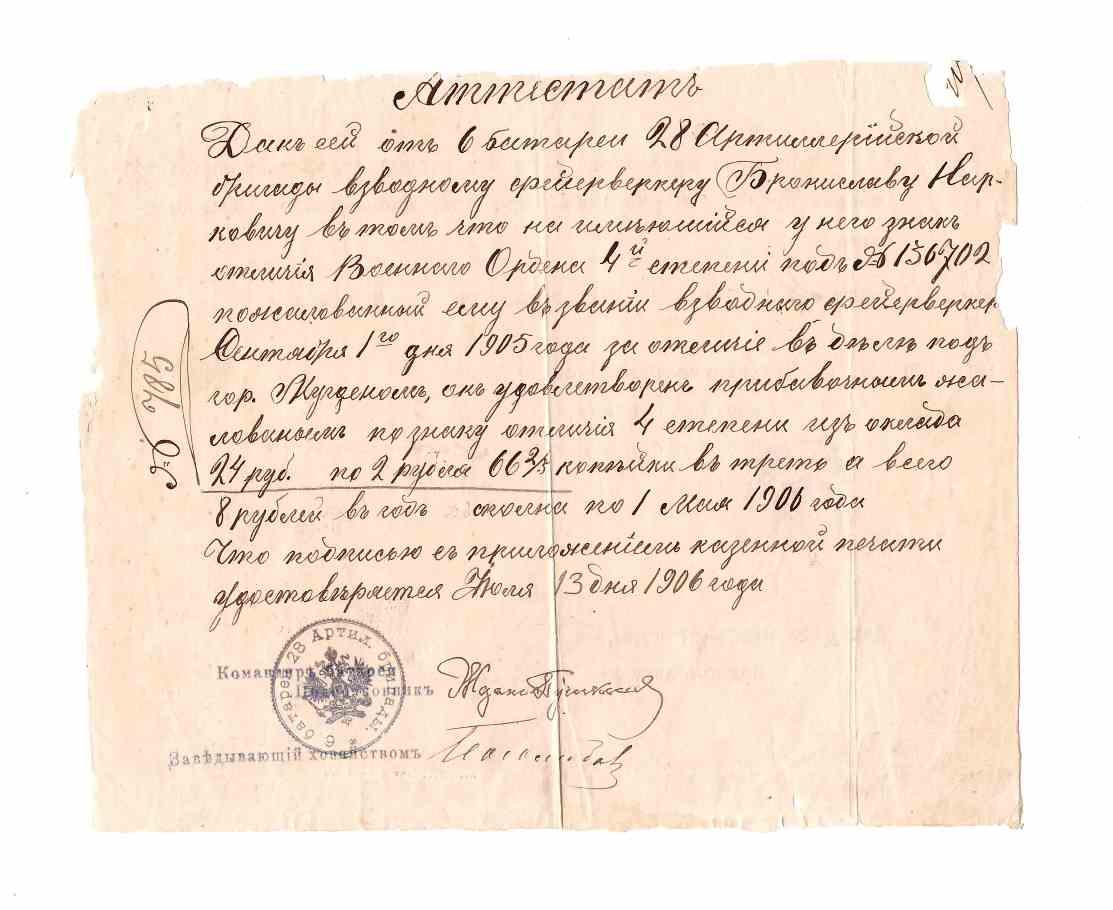 Аттестатъ
Данъ сей отъ 6 батареи 28 Артиллерійской
бригады взводному фейерверкеру Брониславу Нар-
ковичу въ томъ что на имѣющійся у него знакъ
отличія Военнаго Ордена 4й степени подъ № 136702
пожалованный ему въ званіи взводнаго фейерверкер
Сентября 1го дня 1905 года за отличіе въ дѣлѣ подъ
гор. Мукденомъ, онъ удовлетворенъ прибавочнымъ жа-
лованьемъ по знаку отличія 4 степени изъ оклада
24 руб. по 2 рубля 66 2/3 копѣйки въ треть а всего
8 рублей въ годъ сполна по 1 Мая 1906 года
Что подписью съ приложеніемъ казенной печати
удостовѣряется Іюля 13 дня 1906 года
Командиръ батареи
Подполковникъ
Завѣдывающій хозяйством
6 батареи 28 Артил. бригады